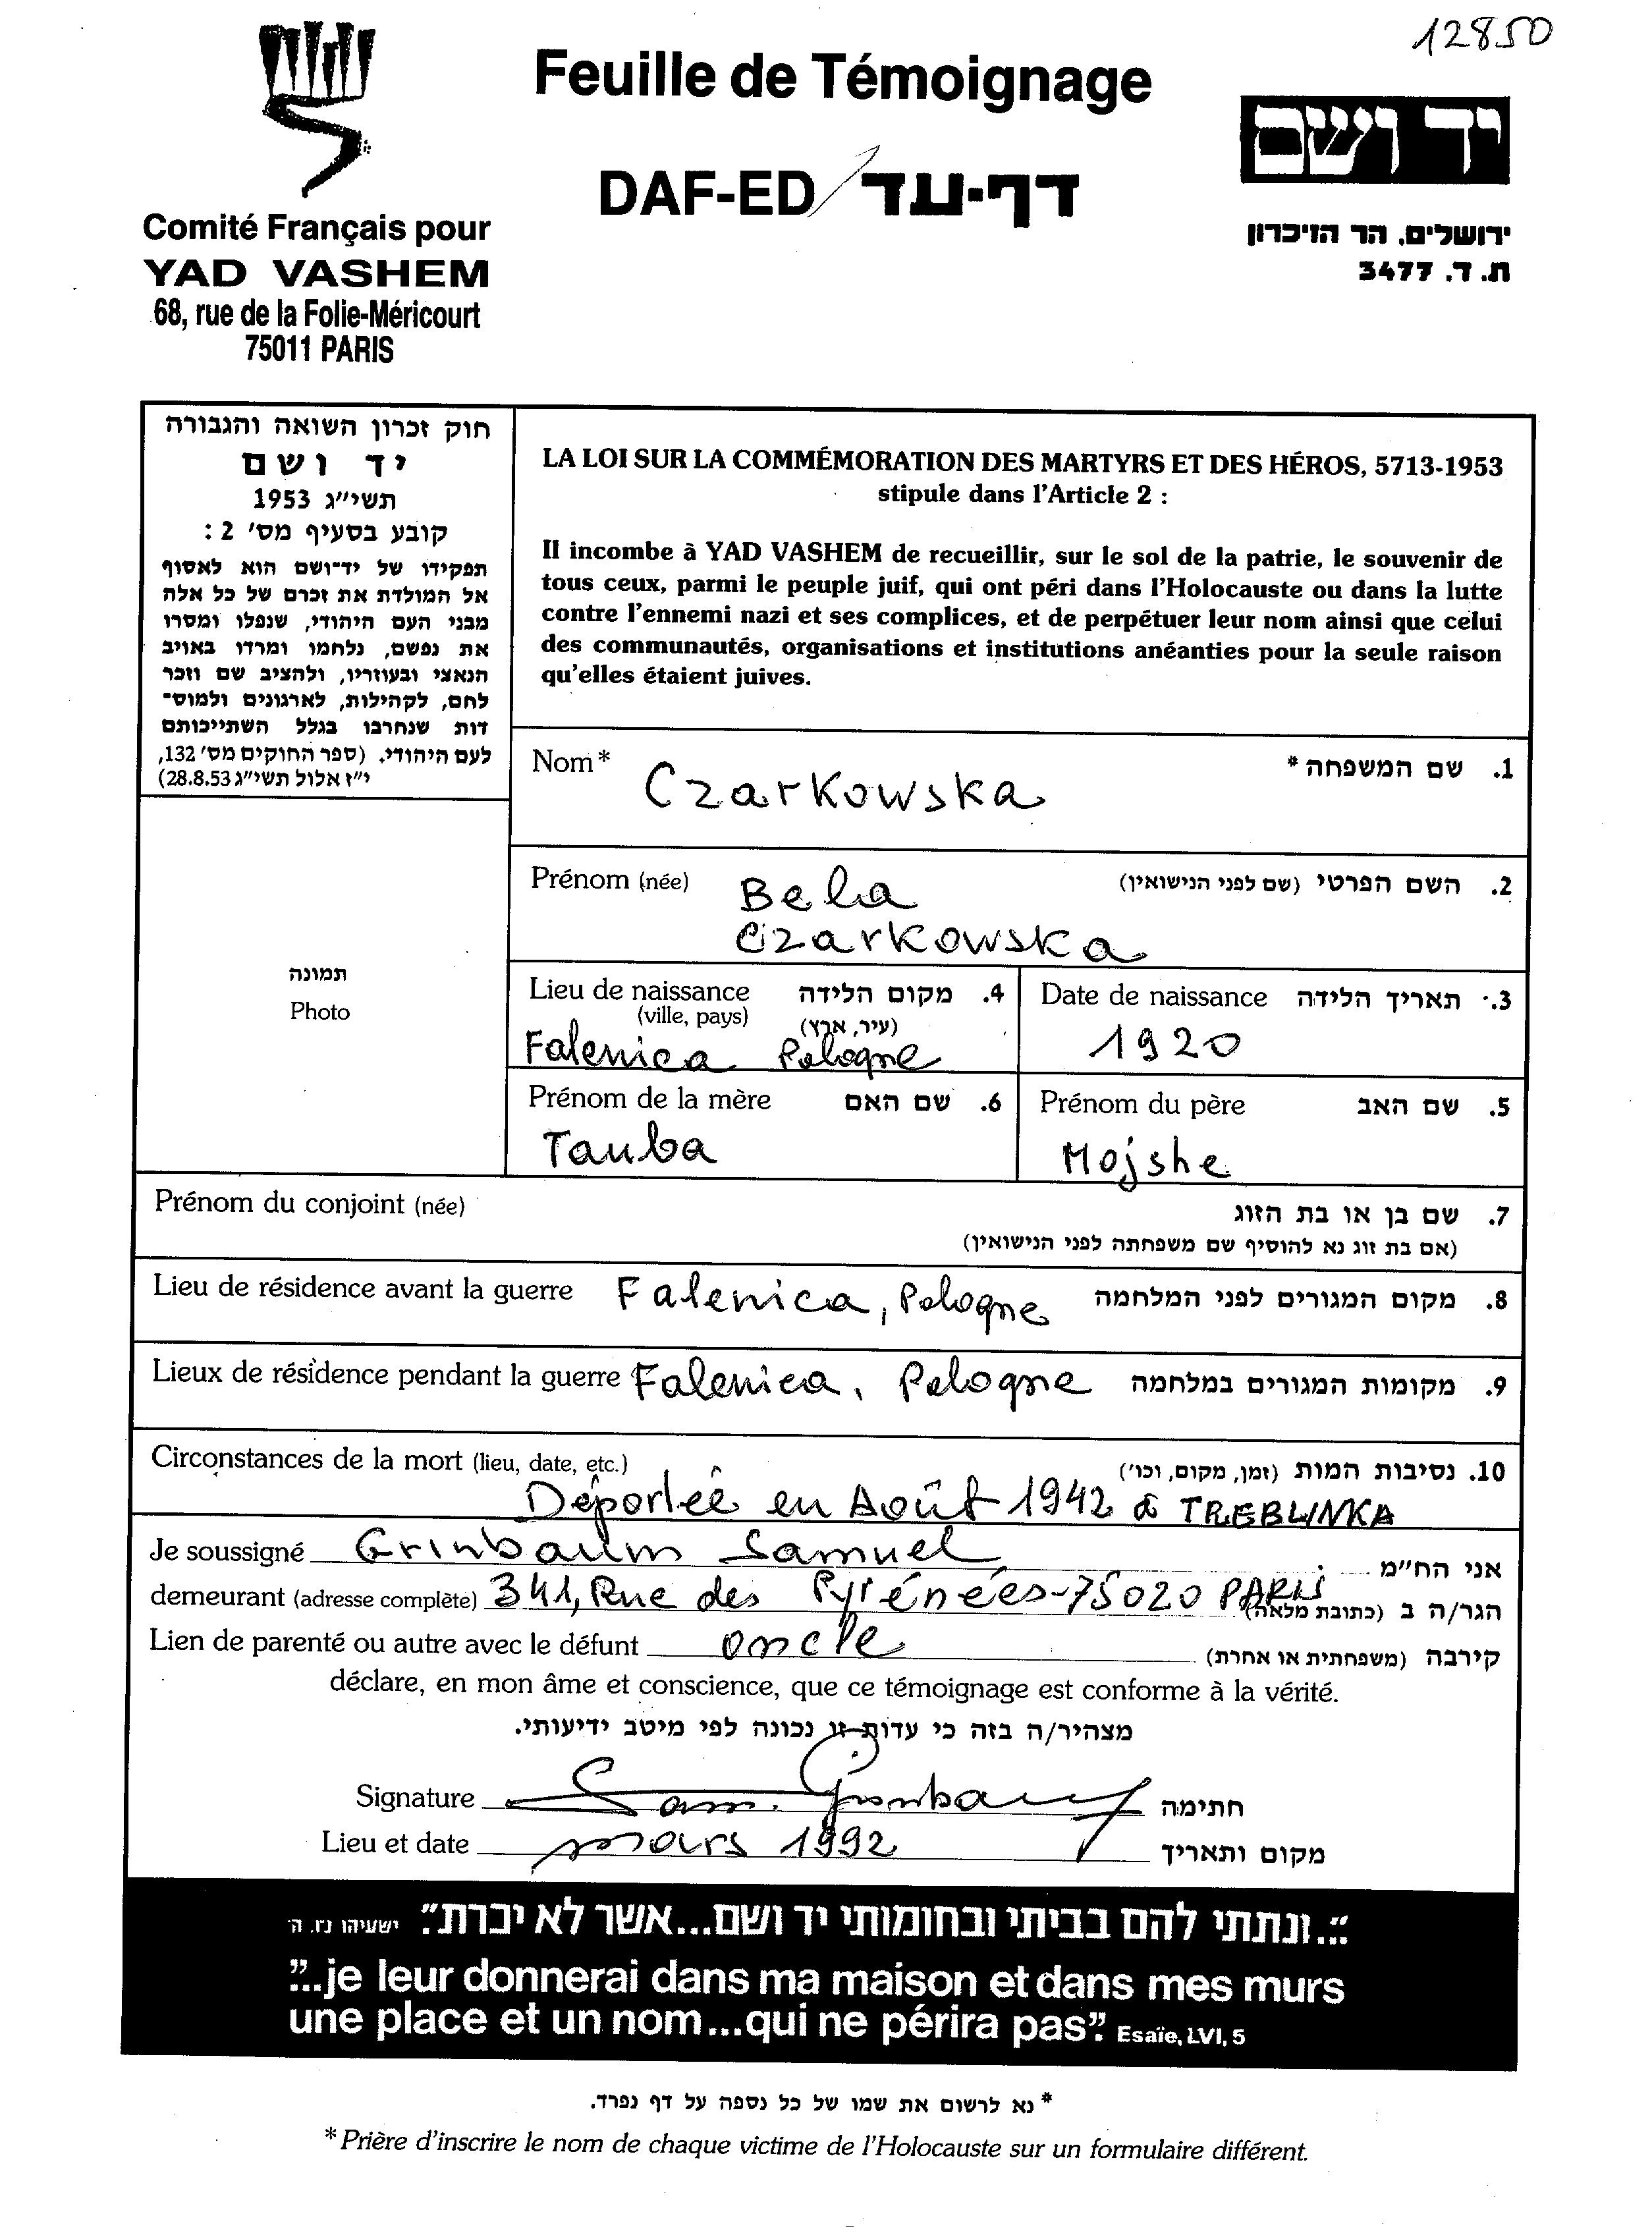 12850
Feuille de Témoignage
DAF-ED / דף-עד
יד ושם
ירושלים. הר הזיכרון
ת. ד. 3477
Comité Français pour
YAD VASHEM
68, rue de la Folie-Méricourt
75011 PARIS
חוק זכרון השואה והגבורה
יד ושם
תשי״ג 1953
קובע בסעיף מס' 2 :
תפקידו של יד־ושם הוא לאסוף
אל המולדת את זכרם של כל אלה
מבני העם היהודי, שנפלו ומסרו
את נפשם, נלחמו ומרדו באויב
הנאצי ובעוזריו, ולהציב שם וזכר
להם, לקהילות, לארגונים ולמוס־
דות שנחרבו בגלל השתייכותם
לעם היהודי. (ספר החוקים מס' 132,
י״ז אלול תשי״ג 28.8.53)
LA LOI SUR LA COMMÉMORATION DES MARTYRS ET DES HÉROS, 5713-1953
stipule dans l'Article 2 :
Il incombe à YAD VASHEM de recueillir, sur le sol de la patrie, le souvenir de
tous ceux, parmi le peuple juif, qui ont péri dans l'Holocauste ou dans la lutte
contre l'ennemi nazi et ses complices, et de perpétuer leur nom ainsi que celui
des communautés, organisations et institutions anéanties pour la seule raison
qu'elles étaient juives.
Nom* Czarkowska 1. שם המשפחה *
Prénom (née) Bela 2. השם הפרטי (שם לפני הנישואין)
Czarkowska
תמונה
Photo
Lieu de naissance 4. מקום הלידה
(ville, pays) (עיר, ארץ)
Falenica Pologne
Date de naissance 3. תאריך הלידה
1920
Prénom de la mère 6. שם האם
Tauba
Prénom du père 5. שם האב
Mojshe
Prénom du conjoint (née) 7. שם בן או בת הזוג
(אם בת זוג נא להוסיף שם משפחתה לפני הנישואין)
Lieu de résidence avant la guerre Falenica, Pologne 8. מקום המגורים לפני המלחמה
Lieux de résidence pendant la guerre Falenica, Pologne 9. מקומות המגורים במלחמה
Circonstances de la mort (lieu, date, etc.) 10. נסיבות המות (זמן, מקום, וכו')
Déportée en Août 1942 à TREBLINKA
Je soussigné Grinbaum Samuel אני הח״מ
demeurant (adresse complète) 341, Rue des Pyrénées-75020 PARIS הגר/ה ב (כתובת מלאה)
Lien de parenté ou autre avec le défunt oncle קירבה (משפחתית או אחרת)
déclare, en mon âme et conscience, que ce témoignage est conforme à la vérité.
מצהיר/ה בזה כי עדות זו נכונה לפי מיטב ידיעותי.
Signature Sam. Grinbaum חתימה
Lieu et date mars 1992 מקום ותאריך
״...ונתתי להם בביתי ובחומותי יד ושם...אשר לא יכרת״. ישעיהו נ״ו. ה'
"...je leur donnerai dans ma maison et dans mes murs
une place et un nom...qui ne périra pas". Esaïe, LVI, 5
* נא לרשום את שמו של כל נספה על דף נפרד.
* Prière d'inscrire le nom de chaque victime de l'Holocauste sur un formulaire différent.